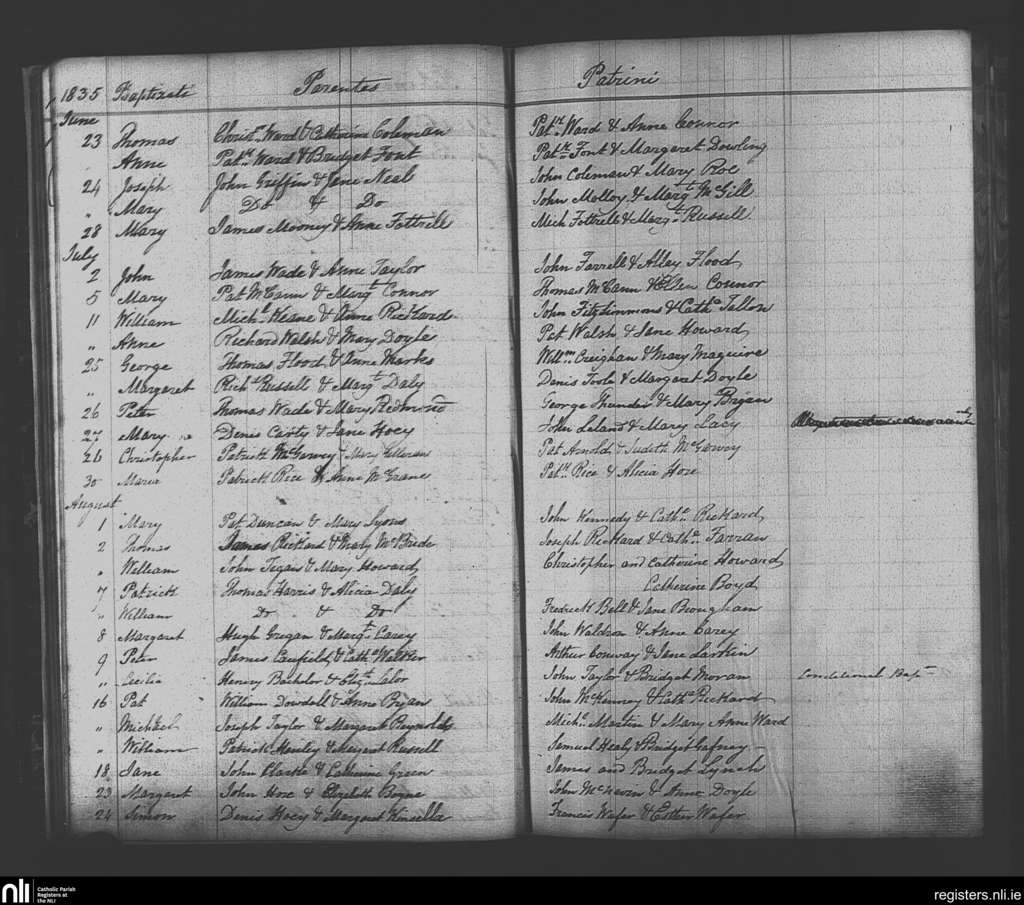 1835 Baptizati Parentes Patrini
June
23 Thomas Christr. Ward & Catherine Coleman Patk. Ward & Anne Connor
" Anne Patk. Ward & Bridget Font Patk. Font & Margaret Dowling
24 Joseph John Griffin & Jane Neal John Coleman & Mary Roe
" Mary Do & Do John Molloy & Margt. McGill
28 Mary James Mooney & Anne Fottrell Mich Fottrell & Margt. Russell
July
2 John James Wade & Anne Taylor John Farrell & Alley Flood
5 Mary Pat McCann & Margt. Connor Thomas McCann & Ellen Connor
11 William Michl. Keane & Anne Rickard John Fitzsimmons & Cathe. Tallon
" Anne Richard Walsh & Mary Doyle Pat Walsh & Jane Howard
25 George Thomas Flood & Anne Marks Willm. Creighan & Mary Maguire
" Margaret Richd. Russell & Margt. Daly Denis Toole & Margaret Doyle
26 Peter Thomas Wade & Mary Redmond George Thunder & Mary Bryan
27 Mary Denis Carty & Jane Hoey John Leland & Mary Lacy
26 Christopher Patrick McGarvey & Mary Pat Arnold & Judith McGarvey
30 Maria Patrick Rice & Anne McGrane Patk. Rice & Alicia Hore
August
1 Mary Pat Duncan & Mary Lyons John Kennedy & Cathe. Rickard
2 Thomas James Rickard & Mary McBride Joseph Rickard & Cathe. Farran
" William John Tegan & Mary Howard Christopher and Catherine Howard
7 Patrick Thomas Harris & Alicia Daly Catherine Boyd
" William Do & Do Fredrick Bell & Jane Brougham
8 Margaret Hugh Gregan & Margt. Carey John Waldron & Anne Carey
9 Peter James Caufield & Cathe. Walker Arthur Conway & Jane Larkin
" Cecilia Henry Bachelor & Elizth. Lalor John Taylor & Bridget Moran Conditional Bap
16 Pat William Dowdall & Anne Bryan John McKenney & Cathe. Rickard
" Michael Joseph Taylor & Margaret Reynolds Michl. Martin & Mary Anne Ward
" William Patrick Henley & Margaret Russell Samuel Healy & Bridget Gafney
18 Jane John Clarke & Catherine Green James and Bridget Lynch
23 Margaret John Hore & Elizabeth Boyne John McKeven & Anne Doyle
24 Simon Denis Hoey & Margaret Kinsella Francis Wafer & Esther Wafer
nli Catholic Parish
Registers at
the NLI
registers.nli.ie